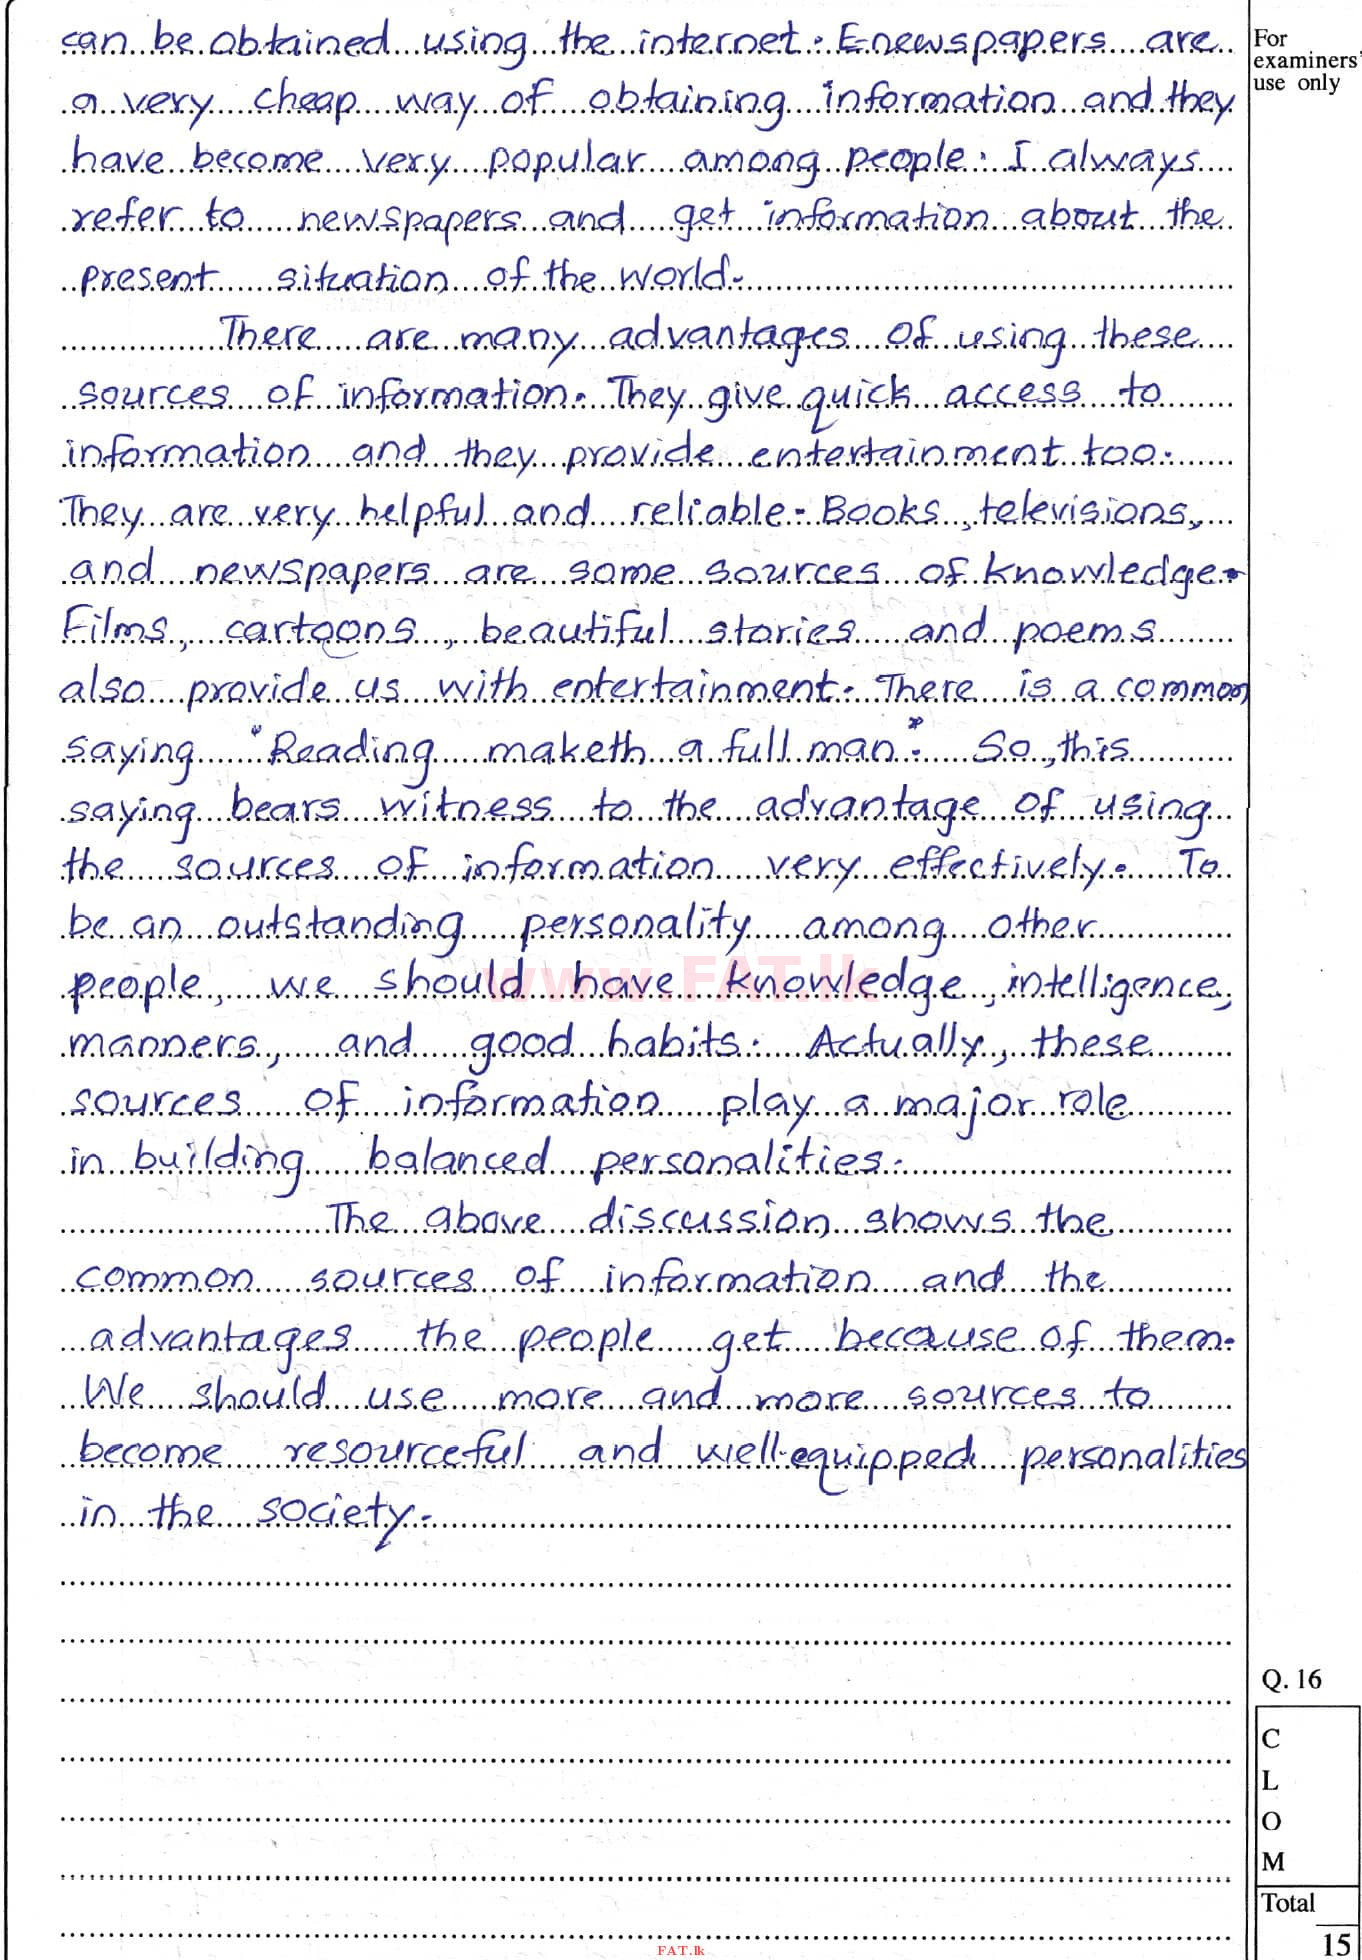 can be obtained using the internet. Enewspapers are
a very cheap way of obtaining information and they
have become very popular among people. I always
refer to newspapers and get information about the
present situation of the world.
There are many advantages of using these
sources of information. They give quick access to
information and they provide entertainment too.
They are very helpful and reliable. Books, televisions,
and newspapers are some sources of knowledge.
Films, cartoons, beautiful stories and poems
also provide us with entertainment. There is a common
saying "Reading maketh a full man". So, this
saying bears witness to the advantage of using
the sources of information very effectively. To
be an outstanding personality among other
people, we should have knowledge, intelligence,
manners, and good habits. Actually, these
sources of information play a major role
in building balanced personalities.
The above discussion, shows the
common sources of information and the
advantages the people get because of them.
We should use more and more sources to
become resourceful and well-equipped personalities
in the society.
For
examiners'
use only
www.FAT.lk
Q. 16
C
L
O
M
Total
15
FAT.lk